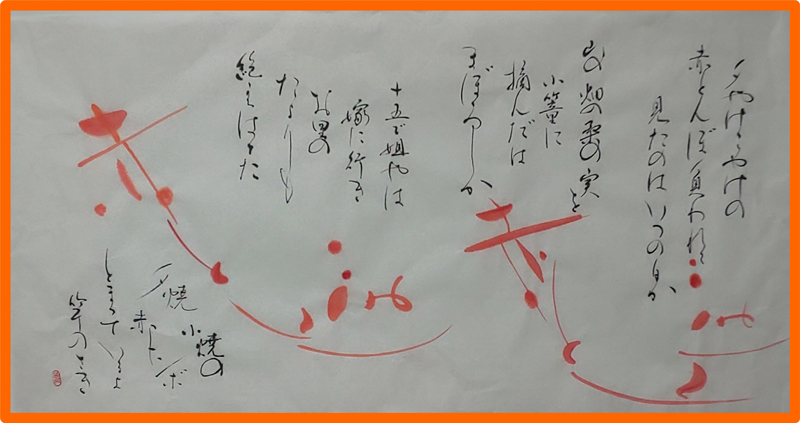 夕やけこやけの
赤とんぼ負われて
見たのはいつの日か
山の畑の桑の実を
小篭に
摘んだは
まぼろしか
十五で姐やは
嫁に行き
お里の
たよりも
絶えはてた
夕焼小焼の
赤トンボ
とまっているよ
竿のさき